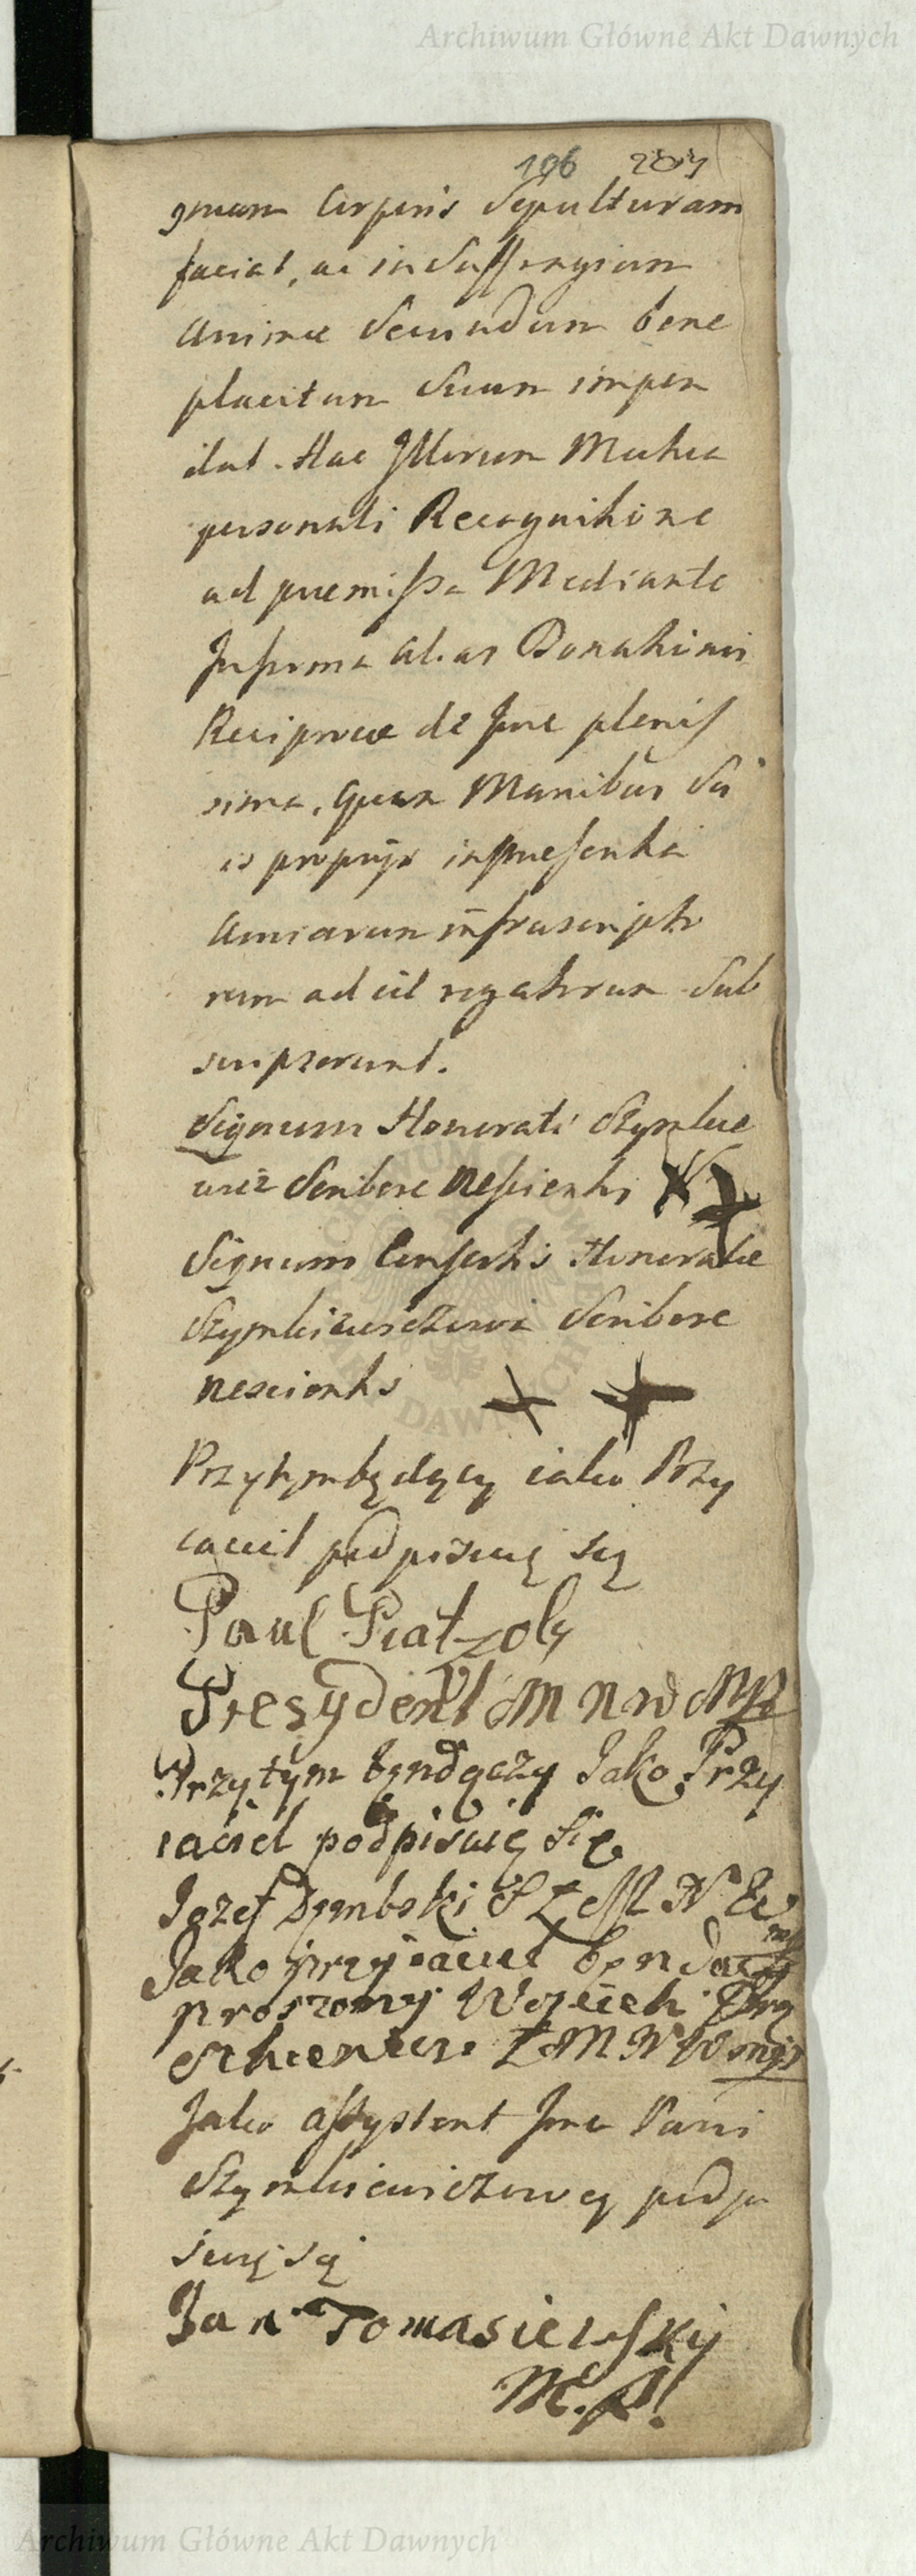 Archiwum Główne Akt Dawnych
106 207
gnum Corporis Sepulturam
faciat, ac in Suffragium
Animæ Secundum bene
placitum Suum impen
dat. Hac Illorum Mutua
personali Recognitione
ad præmissa Mediante
Inscrima alias Donationis
Reciprocæ de Jure plenis
sima, Quam Manibus Su
is proprijs in præsentia
Amicorum infrascripto
rum ad id rogatorum Sub
scripserunt.
Signum Honorati Szymkie
wicz Scribere Nescientis
Signum Consortis Honoratæ
Szymkiewiczowa Scribere
nescientis
Przytym będący iako Przy
iaciel podpisuię się
Paul Piatzoly
Presydent M N W MP
Przytym będączy Jako Przy
iaciel podpisuię Się
Jozef Dembski
Jako przyiaciel będący
proszony Woyciech
Z M N W mp
Jako assystent Jmc Pani
Szymkiewiczowey podpi
suię się
Jan Tomasiewsky
M.P.
Archiwum Główne Akt Dawnych